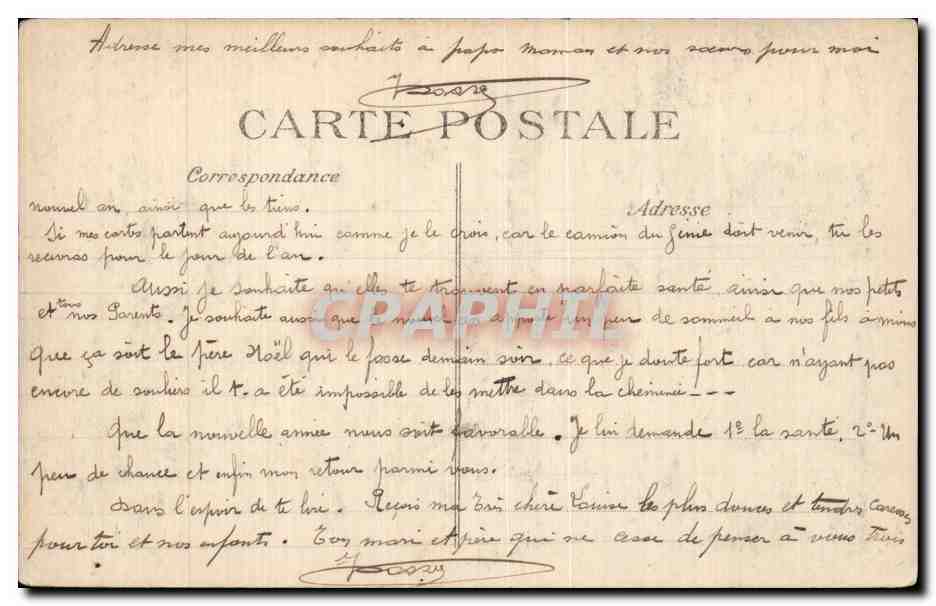 Adresse mes meilleurs souhaits à papa maman et nos sœurs pour moi
CARTE POSTALE
Correspondance
Adresse
nouvel an, ainsi que les tiens.
Si mes cartes partent aujourd'hui comme je le crois, car le camion du génie doit venir, tu les
recevras pour le jour de l'an.
Aussi je souhaite qu'elles te trouvent en parfaite santé, ainsi que nos petits
et tous nos Parents. Je souhaite aussi que le nouvel an apporte un peu de sommeil à nos fils à moins
CPAPHIL
que ça soit le père Noël qui le fasse demain soir, ce que je doute fort, car n'ayant pas
encore de souliers il t. a été impossible de les mettre dans la cheminée ---
Que la nouvelle année nous soit favorable. Je lui demande 1º la santé, 2º Un
peu de chance et enfin mon retour parmi vous.
Dans l'espoir de te lire. Reçois ma très chère Louise les plus douces et tendres caresses
pour toi et nos enfants. Ton mari et père qui ne cesse de penser à vous trois